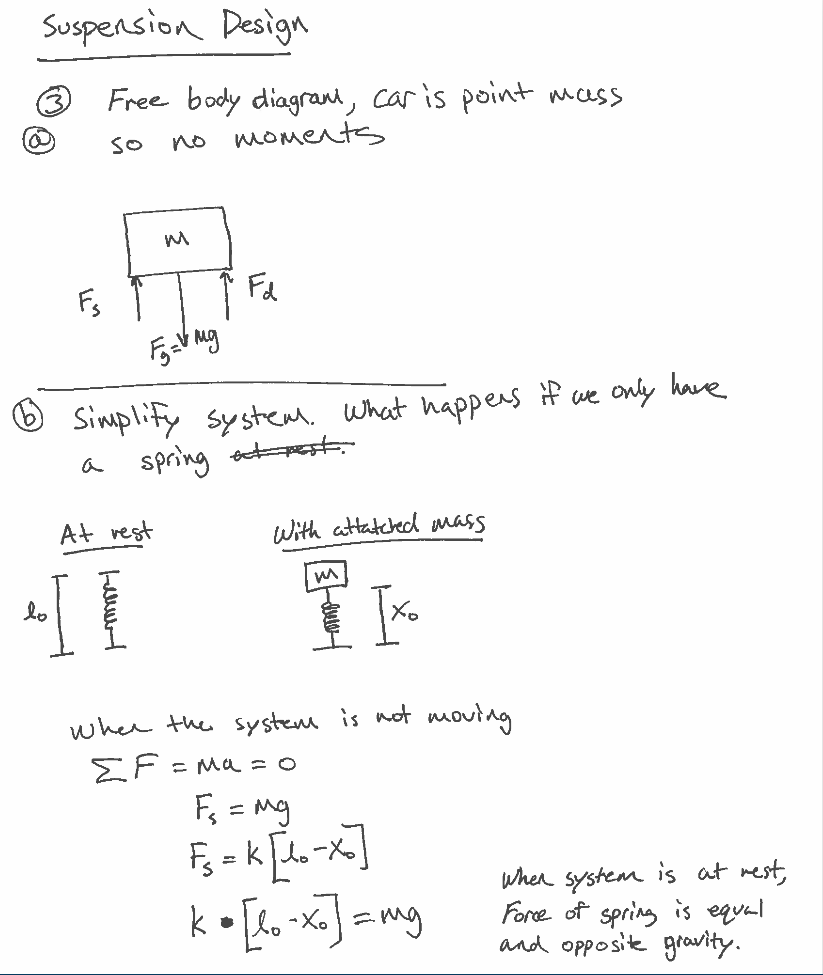 Suspension Design
③ Free body diagram, car is point mass
ⓐ so no moments
m
F_s
F_d
F_g = mg
ⓑ Simplify system. What happens if we only have
a spring at rest.
At rest
With attatched mass
l₀
m
x₀
When the system is not moving
ΣF = ma = 0
F_s = mg
F_s = k[l₀-x₀]
k • [l₀-x₀] = mg
When system is at rest,
Force of spring is equal
and opposite gravity.